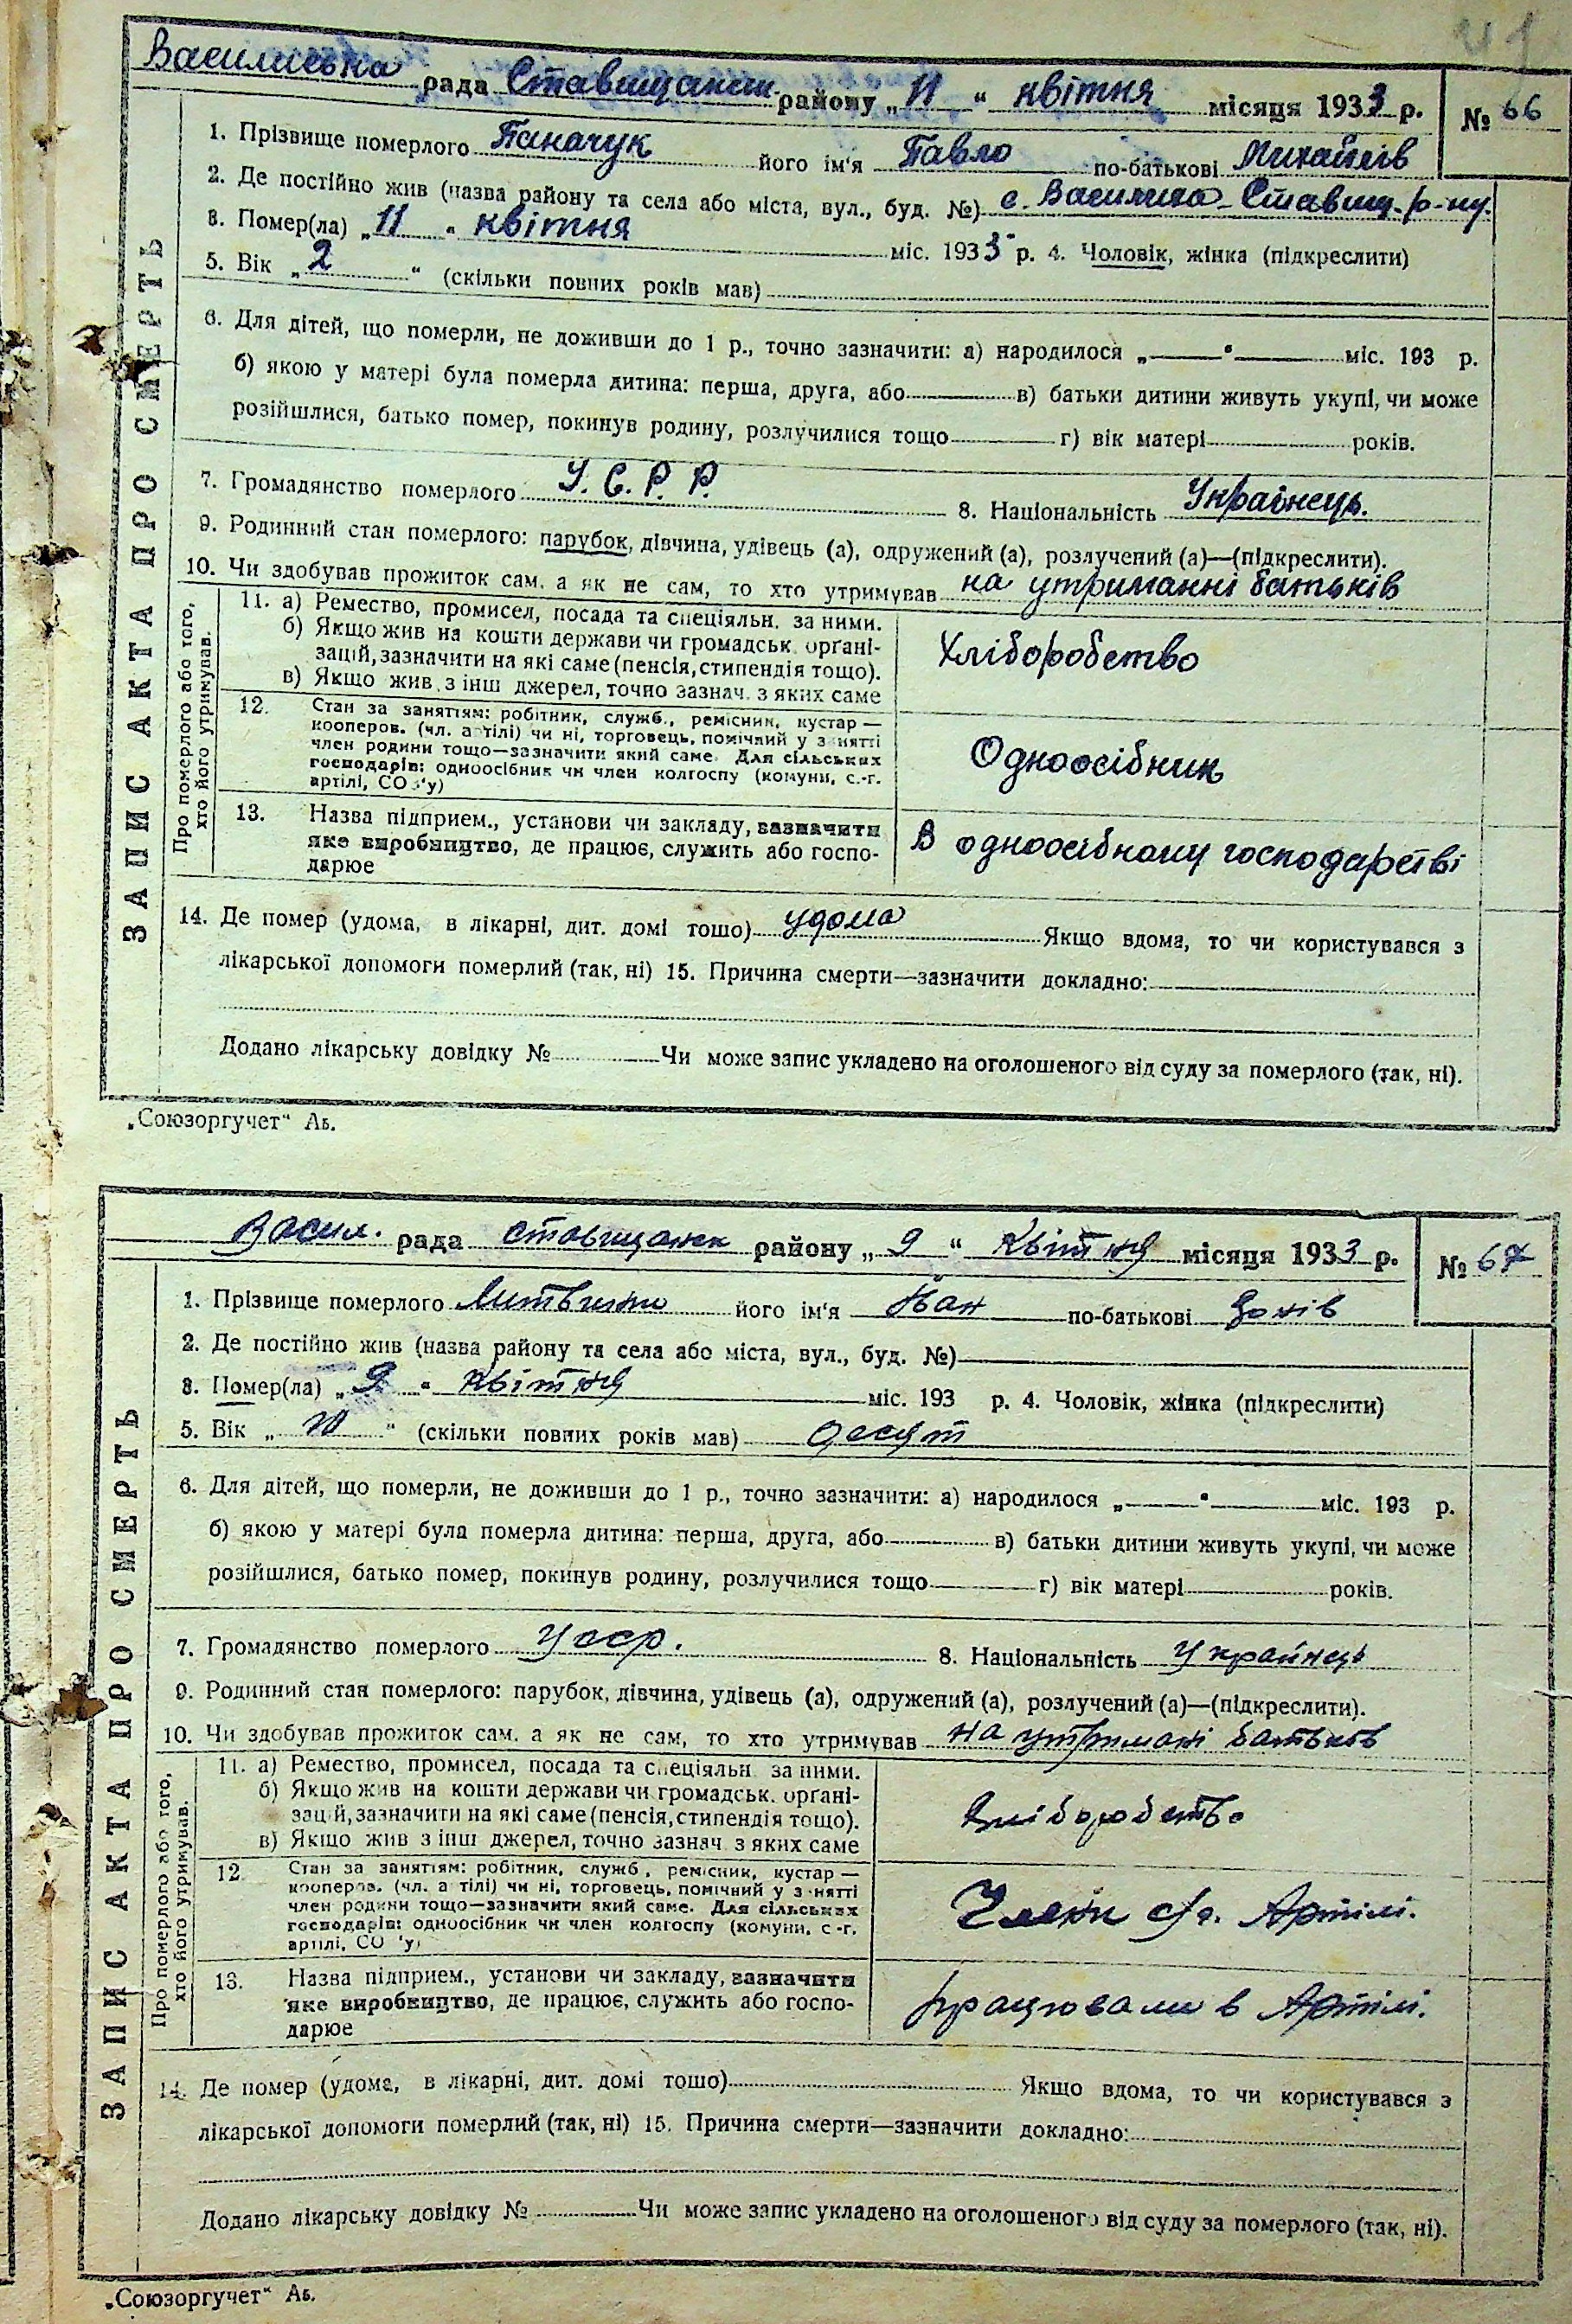 Василиська рада Ставищанськ. району „11“ квітня місяця 1933 р. № 66
1. Прізвище померлого Паначук його ім'я Павло по-батькові Михайлів
2. Де постійно жив (назва району та села або міста, вул., буд. №) с. Василиха Ставищ. р-ну.
3. Помер(ла) „11“ квітня міс. 1933 р. 4. Чоловік, жінка (підкреслити)
5. Вік „2“ (скільки повних років мав)
6. Для дітей, що померли, не доживши до 1 р., точно зазначити: а) народилося „—“— міс. 193 р.
б) якою у матері була померла дитина: перша, друга, або в) батьки дитини живуть укупі, чи може
розійшлися, батько помер, покинув родину, розлучилися тощо г) вік матері років.
7. Громадянство померлого У.С.Р.Р. 8. Національність Українець.
9. Родинний стан померлого: парубок, дівчина, удівець (а), одружений (а), розлучений (а)—(підкреслити).
10. Чи здобував прожиток сам, а як не сам, то хто утримував на утриманні батьків
ЗАПИС АКТА ПРО СМЕРТЬ
Про померлого або того,
хто його утримував.
11. а) Ремество, промисел, посада та спеціяльн. за ними.
б) Якщо жив на кошти держави чи громадськ. орґані-
зацій, зазначити на які саме (пенсія, стипендія тощо).
в) Якщо жив з інш джерел, точно зазнач. з яких саме
Хліборобство
12. Стан за заняттям: робітник, служб., ремісник, кустар —
кооперов. (чл. артілі) чи ні, торговець, помічний у занятті
член родини тощо—зазначити який саме. Для сільських
господарів: одноосібник чи член колгоспу (комуни, с.-г.
артілі, СОЗ'у)
Одноосібник
13. Назва підприєм., установи чи закладу, зазначити
яке виробництво, де працює, служить або госпо-
дарює
В одноосібному господарстві
14. Де помер (удома, в лікарні, дит. домі тощо) удома Якщо вдома, то чи користувався з
лікарської допомоги померлий (так, ні) 15. Причина смерти—зазначити докладно:
Додано лікарську довідку № Чи може запис укладено на оголошеного від суду за померлого (так, ні).
„Союзоргучет“ Аб.
Васил. рада Ставищанск району „9“ Квітня місяця 1933 р. № 67
1. Прізвище померлого його ім'я Іван по-батькові
2. Де постійно жив (назва району та села або міста, вул., буд. №)
3. Помер(ла) „9“ Квітня міс. 193 р. 4. Чоловік, жінка (підкреслити)
5. Вік „10“ (скільки повних років мав) десят
6. Для дітей, що померли, не доживши до 1 р., точно зазначити: а) народилося „—“— міс. 193 р.
б) якою у матері була померла дитина: перша, друга, або в) батьки дитини живуть укупі, чи може
розійшлися, батько помер, покинув родину, розлучилися тощо г) вік матері років.
7. Громадянство померлого Усср. 8. Національність Украйнець
9. Родинний стан померлого: парубок, дівчина, удівець (а), одружений (а), розлучений (а)—(підкреслити).
10. Чи здобував прожиток сам, а як не сам, то хто утримував на утримані батьків
ЗАПИС АКТА ПРО СМЕРТЬ
Про померлого або того,
хто його утримував.
11. а) Ремество, промисел, посада та спеціяльн. за ними.
б) Якщо жив на кошти держави чи громадськ. орґані-
зацій, зазначити на які саме (пенсія, стипендія тощо).
в) Якщо жив з інш джерел, точно зазнач. з яких саме
Хліборобство
12. Стан за заняттям: робітник, служб., ремісник, кустар —
кооперов. (чл. артілі) чи ні, торговець, помічний у занятті
член родини тощо—зазначити який саме. Для сільських
господарів: одноосібник чи член колгоспу (комуни, с.-г.
артілі, СОЗ'у)
Члени с/г. Артілі.
13. Назва підприєм., установи чи закладу, зазначити
яке виробництво, де працює, служить або госпо-
дарює
працювали в Артілі.
14. Де помер (удома, в лікарні, дит. домі тощо) Якщо вдома, то чи користувався з
лікарської допомоги померлий (так, ні) 15. Причина смерти—зазначити докладно:
Додано лікарську довідку № Чи може запис укладено на оголошеного від суду за померлого (так, ні).
„Союзоргучет“ Аб.